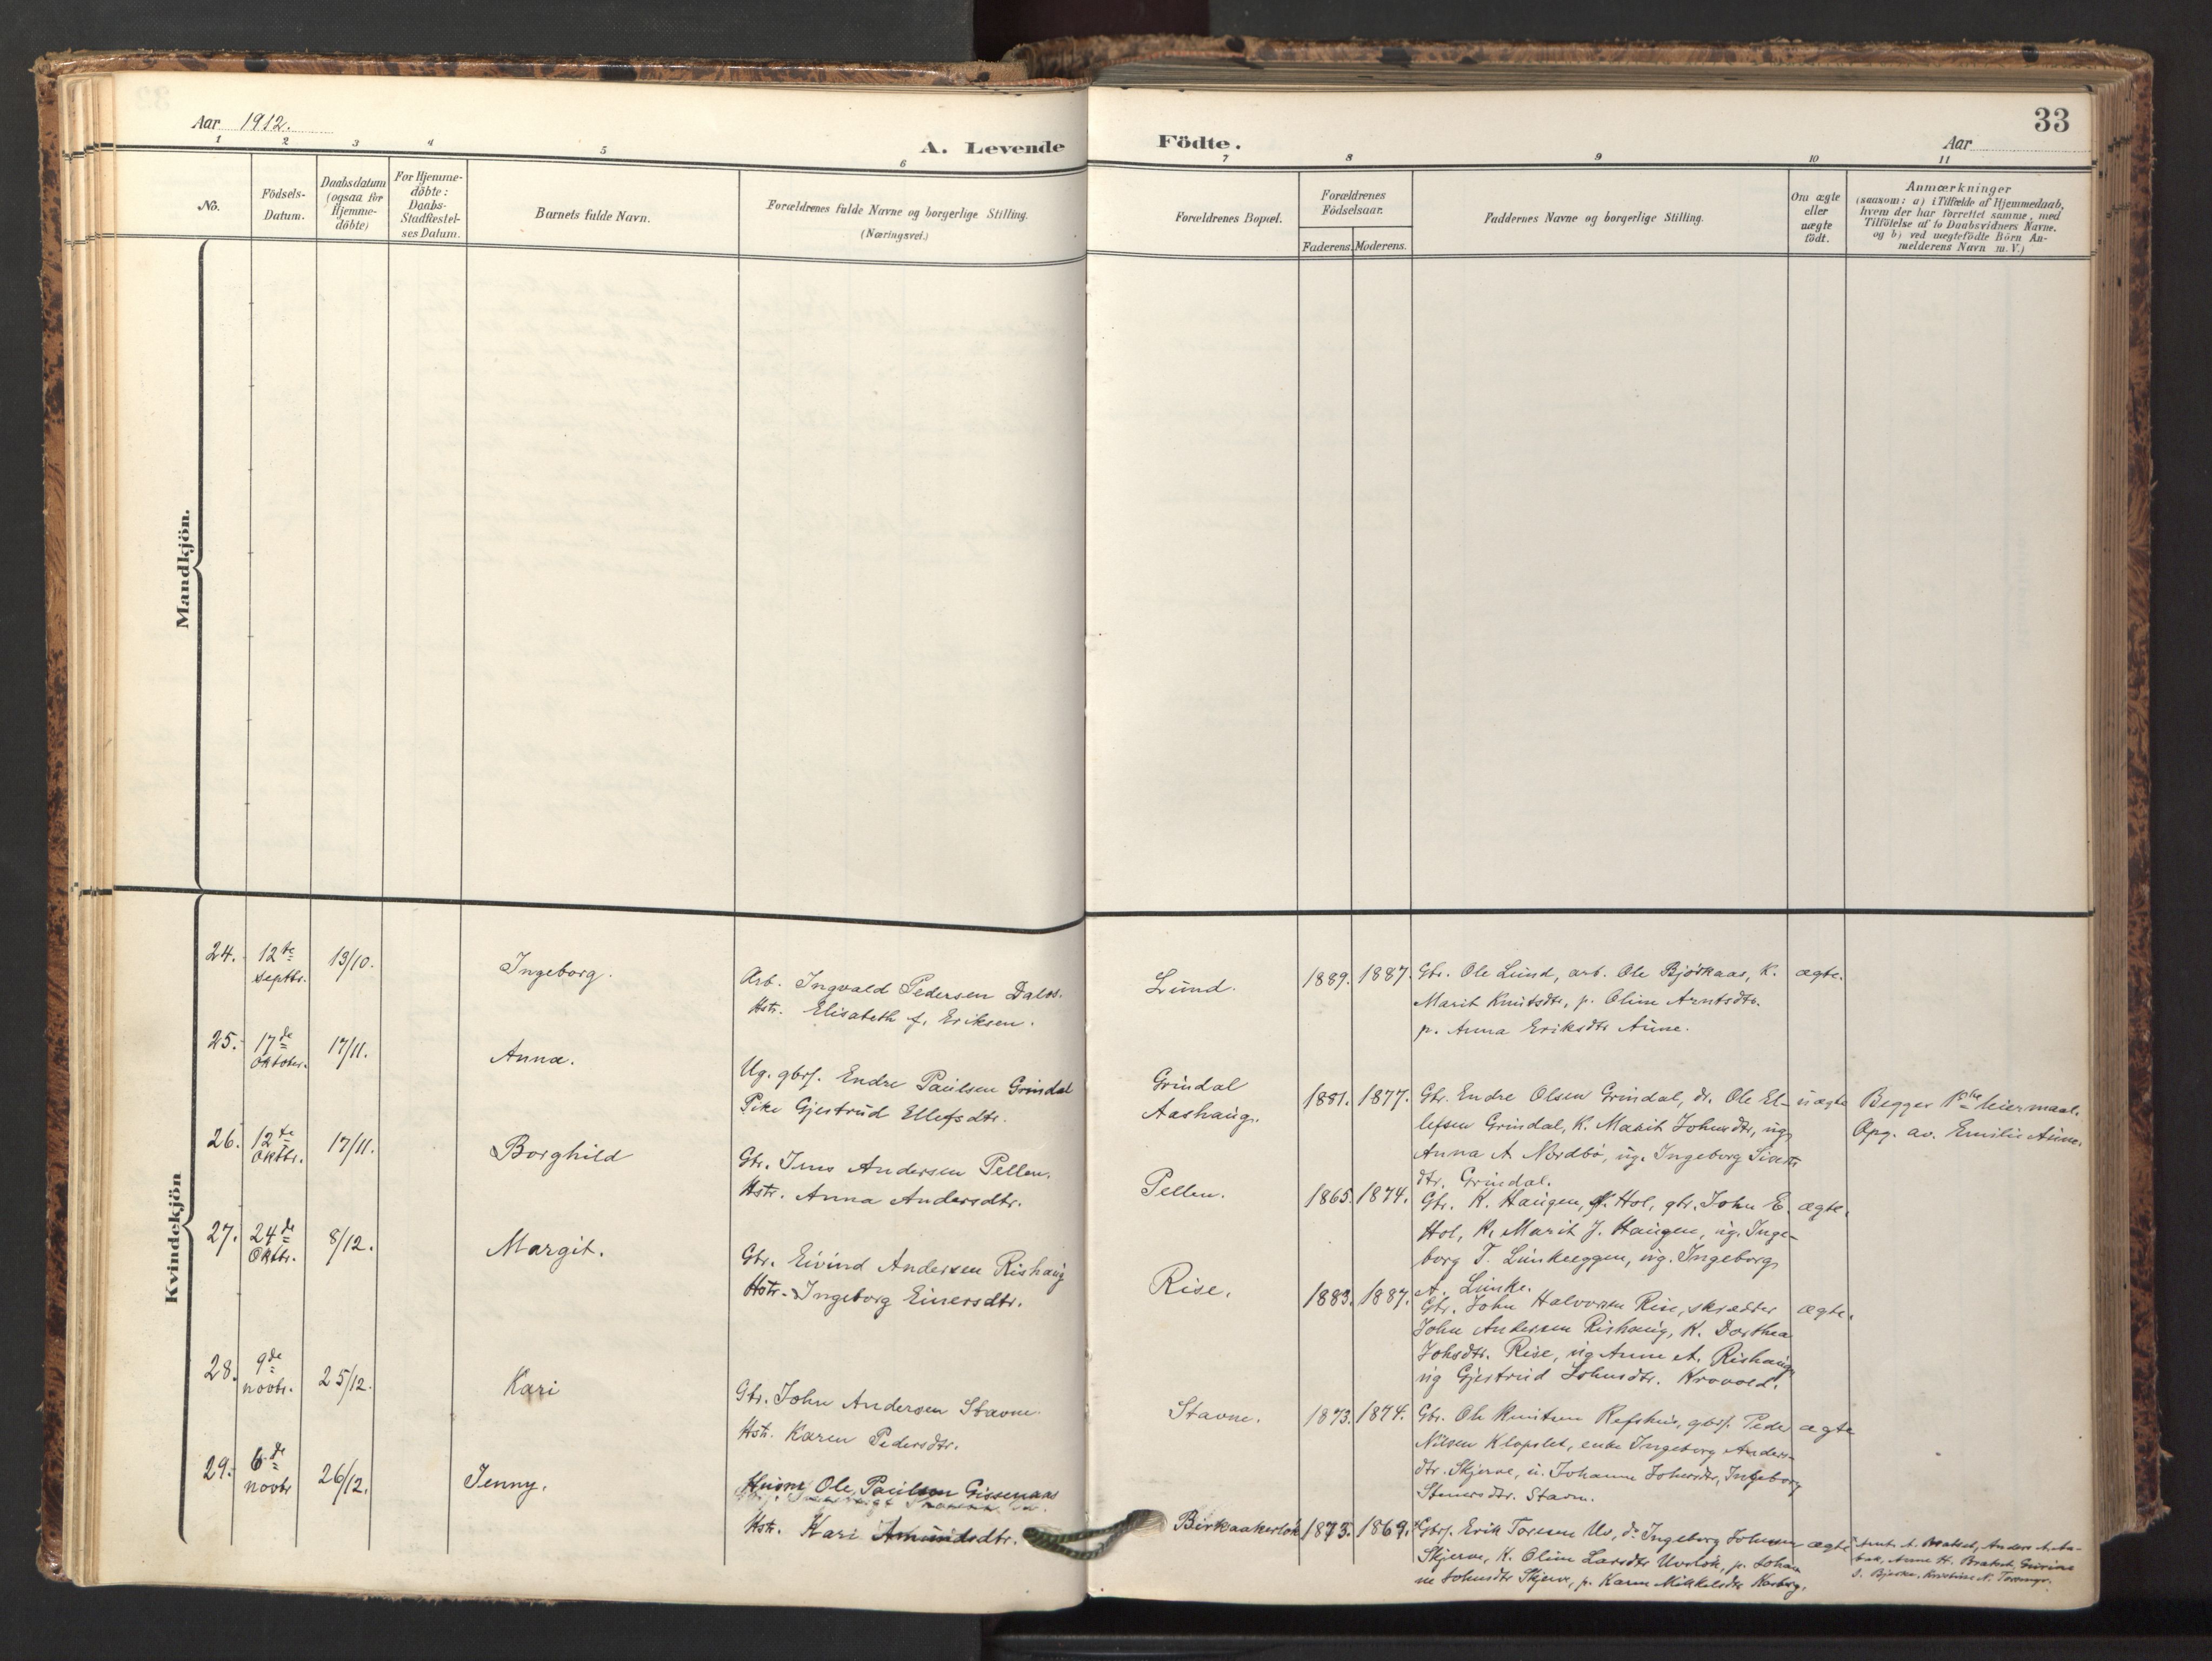 Aar 1912.
A. Levende
Födte.
Aar
33
1 2 3 4 5 6 7 8 9 10 11
No.
Födsels-
Datum.
Daabsdatum
(ogsaa for
Hjemme-
döbte)
For Hjemme-
döbte:
Daabs-
Stadfæstel-
ses Datum.
Barnets fulde Navn.
Forældrenes fulde Navne og borgerlige Stilling.
(Næringsvei.)
Forældrenes Bopæl.
Forældrenes
Födselsaar.
Faderens. Moderens.
Faddernes Navne og borgerlige Stilling.
Om ægte
eller
uægte
födt.
Anmærkninger
(saasom: a) i Tilfælde af Hjemmedaab,
hvem der har forrettet samme, med
Tilföielse af to Daabsvidners Navne.
og b) ved uægtefödte Börn An-
melderens Navn m. V.)
Mandkjön.
Kvindekjön
24. 12te septbr. 13/10. Ingeborg.
Arb. Ingvald Pedersen Dalos.
Hstr. Elisabeth f. Eriksen.
Lund. 1889. 1887.
Gbr. Ole Lund, arb. Ole Bjørkaas, K.
Marit Knutsdtr, p. Oline Arntsdtr.
p. Anna Eriksdtr Aune.
ægte.
25. 17de Oktober. 17/11. Anna.
Ug. gbrs. Endre Paulsen Grindal
Pike Gjestrud Ellefsdtr.
Grindal
Aashaug. 1881. 1877.
Gbr. Endre Olsen Grindal, do. Ole El-
lefsen Grindal, K. Marit Johnsdtr, ug.
Anna A Nordbø, ug. Ingeborg Siverts
dtr. Grindal.
uægte
Begges 1ste leiermaal.
Opg. av. Emilie Aune.
26. 12te Oktbr. 17/11. Borghild
Gbr. Jens Andersen Pellen.
Hstr. Anna Andersdtr.
Pellen. 1865. 1874.
Gbr. K. Haugen, Hol, gbr. John E.
Hol, K. Marit J. Haugen, ug. Inge-
borg T. Lunkeeggen, ug. Ingeborg
A. Lunke.
ægte.
27. 24de Oktbr. 8/12. Margit.
Gbr. Eivind Andersen Rishaug
Hstr. Ingeborg Einersdtr.
Rise. 1883. 1887.
Gbr. John Halvorsen Rise, skrædder
John Andersen Rishaug, K. Dorthea
Johsdtr. Rise, ug Anne A. Rishaug
ug Gjestrud Johnsdtr. Krovold.
ægte.
28. 9de novbr. 25/12. Kari
Gbr. John Andersen Stavne.
Hstr. Karen Pedersdtr.
Stavne. 1873. 1874.
Gbr. Ole Knutsen Refshus, gbrs. Peder
Nilsen Klopslet, enke Ingeborg Anders-
dtr. Skjerve, u. Johanne Johnsdtr, Ingeborg
Stenersdtr. Stavn.
ægte
29. 6de novbr 26/12. Jenny.
Husm. Ole Paulsen Gissenaas
Hstr. Kari Amundsdtr.
Birkaakerløk 1873. 1869.
Gbrs. Erik Toresen Uv, do Ingeborg Johnsen
Skjerve, K. Oline Larsdtr Uvsløk, p. Johan
ne Johnsdtr Skjerve, p. Karen Mikkelsdtr Kosberg.
ægte
Arnt A. Bratset, Anders A. Aa-
bak, Anne H. Bratset, Gurine
S. Bjerke, Kristine N. Toremyr.